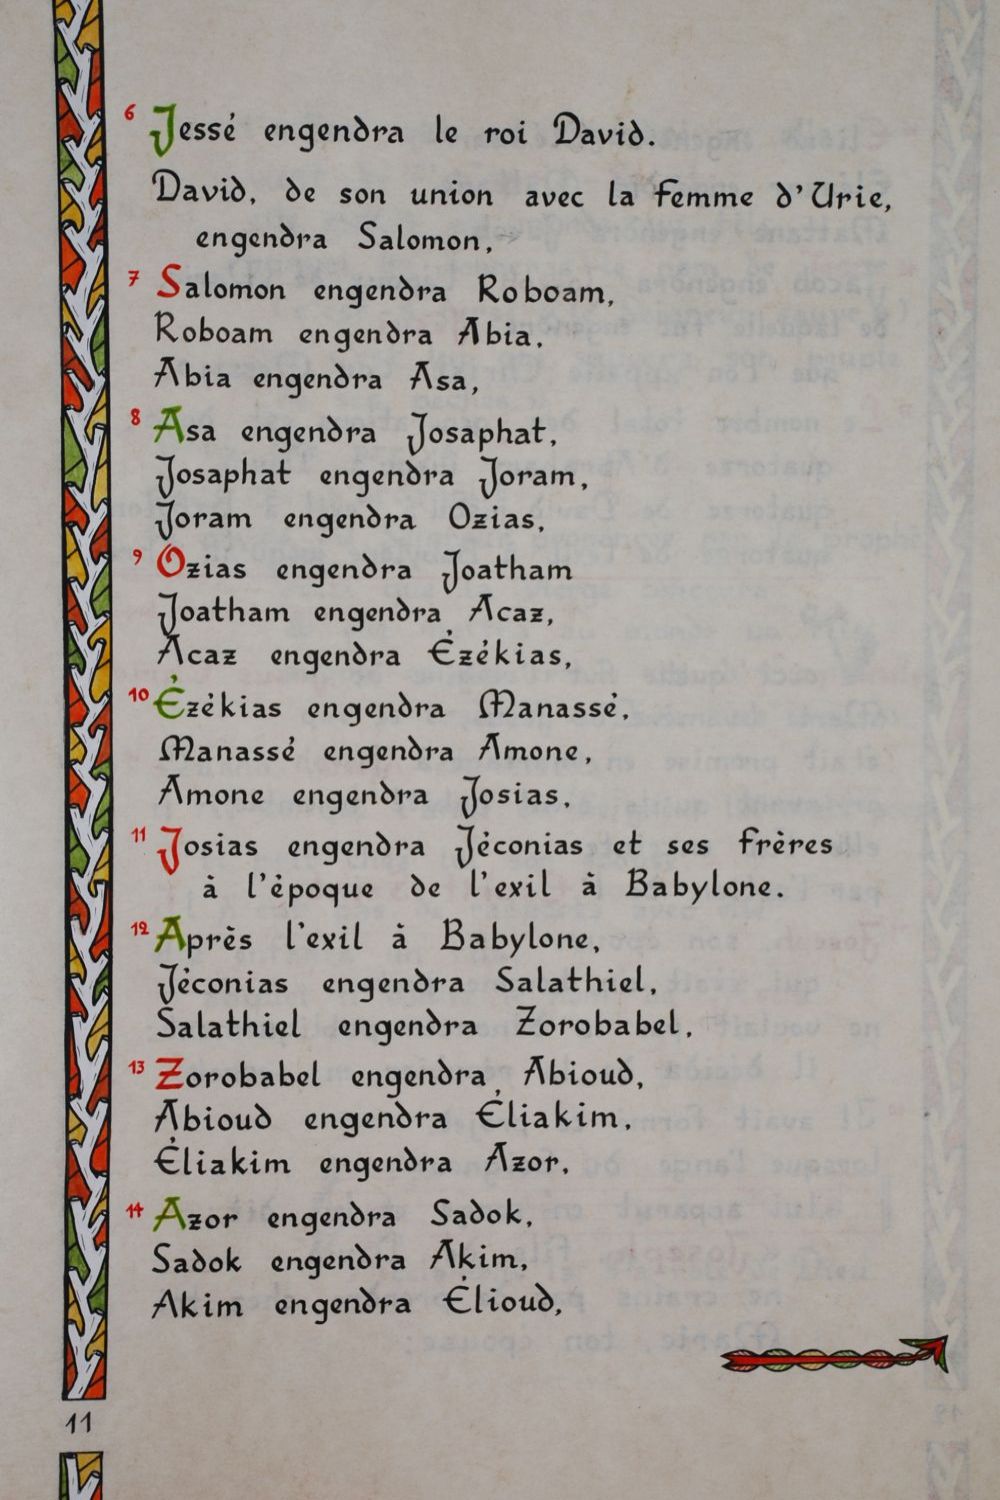 6 Jessé engendra le roi David.
David, de son union avec la femme d'Urie,
engendra Salomon,
7 Salomon engendra Roboam,
Roboam engendra Abia,
Abia engendra Asa,
8 Asa engendra Josaphat,
Josaphat engendra Joram,
Joram engendra Ozias,
9 Ozias engendra Joatham
Joatham engendra Acaz,
Acaz engendra Ézékias,
10 Ézékias engendra Manassé,
Manassé engendra Amone,
Amone engendra Josias,
11 Josias engendra Jéconias et ses frères
à l'époque de l'exil à Babylone.
12 Après l'exil à Babylone,
Jéconias engendra Salathiel,
Salathiel engendra Zorobabel,
13 Zorobabel engendra Abioud,
Abioud engendra Éliakim,
Éliakim engendra Azor,
14 Azor engendra Sadok,
Sadok engendra Akim,
Akim engendra Élioud,
11